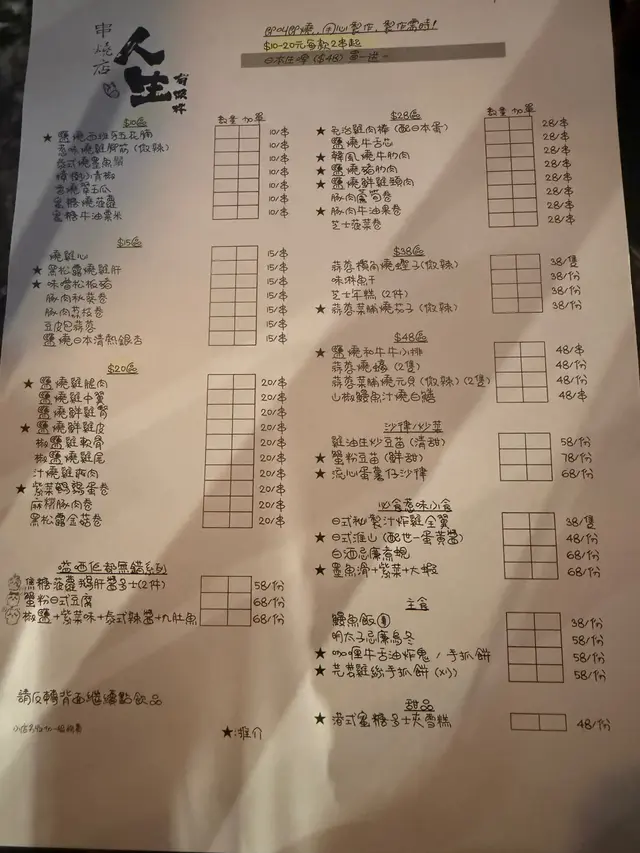 串燒店
人生
有限时
即叫即燒，用心製作，製作需時！
$10-20元每款2串起
日本生啤 ($48) 買一送一
$10區
數量 加單
★ 鹽燒西班牙五花腩 10/串
惹味燒雞脾筋(微辣) 10/串
泰式燒墨魚鬚 10/串
10/串
10/串
蜜糖燒菠蘿 10/串
蜜糖牛油粟米 10/串
$15區
燒雞心 15/串
★ 黑松露燒雞肝 15/串
★ 味噌松板豬 15/串
豚肉秋葵卷 15/串
豚肉荔枝卷 15/串
豆皮包蒜蓉 15/串
鹽燒日本清熱銀杏 15/串
$20區
★ 鹽燒雞腿肉 20/串
鹽燒雞中翼 20/串
鹽燒鮮雞腎 20/串
★ 鹽燒鮮雞皮 20/串
椒鹽雞軟骨 20/串
椒鹽燒雞尾 20/串
汁燒雞 肉 20/串
★ 紫菜鵪鶉蛋卷 20/串
麻糬豚肉卷 20/串
黑松露金菇卷 20/串
嗌晒佢都無錯系列
焦糖菠蘿鵝肝醬多士(2件) 58/份
蟹粉日式豆腐 68/份
椒鹽+紫菜味+泰式辣醬+九肚魚 68/份
請反轉背面繼續點飲品
★:推介
$28區
數量 加單
★ 免治雞肉棒(配日本蛋) 28/串
鹽燒牛舌芯 28/串
★ 韓風燒牛肋肉 28/串
★ 鹽燒豬肋肉 28/串
★ 鹽燒鮮雞頸肉 28/串
豚肉露筍卷 28/串
★ 豚肉牛油果卷 28/串
芝士菠菜卷 28/串
$38區
蒜蓉獨角燒蟶子(微辣) 38/隻
味淋魚干 38/份
芝士年糕(2件) 38/份
★ 蒜蓉菜脯燒茄子(微辣) 38/份
$48區
★ 鹽燒和牛牛小排 48/串
蒜蓉燒蠔(2隻) 48/份
蒜蓉菜脯燒元貝(微辣)(2隻) 48/份
山椒鰻魚汁燒白鱔 48/串
沙律/炒菜
雞油生炒豆苗(清甜) 58/份
★ 蟹粉豆苗(鮮甜) 78/份
★ 流心蛋薯仔沙律 68/份
必食惹味小食
日式秘製汁炸雞全翼 38/隻
★ 日式淮山(配世一蛋黃醬) 48/份
白酒忌廉煮蜆 68/份
★ 墨魚滑+紫菜+大蝦 68/份
主食
鰻魚飯 38/份
明太子忌廉烏冬 58/份
★ 咖喱牛舌油炸鬼/手抓餅 58/份
★ 芫茜雞絲手抓餅(X1) 58/份
甜品
★ 港式蜜糖多士夾雪糕 48/份